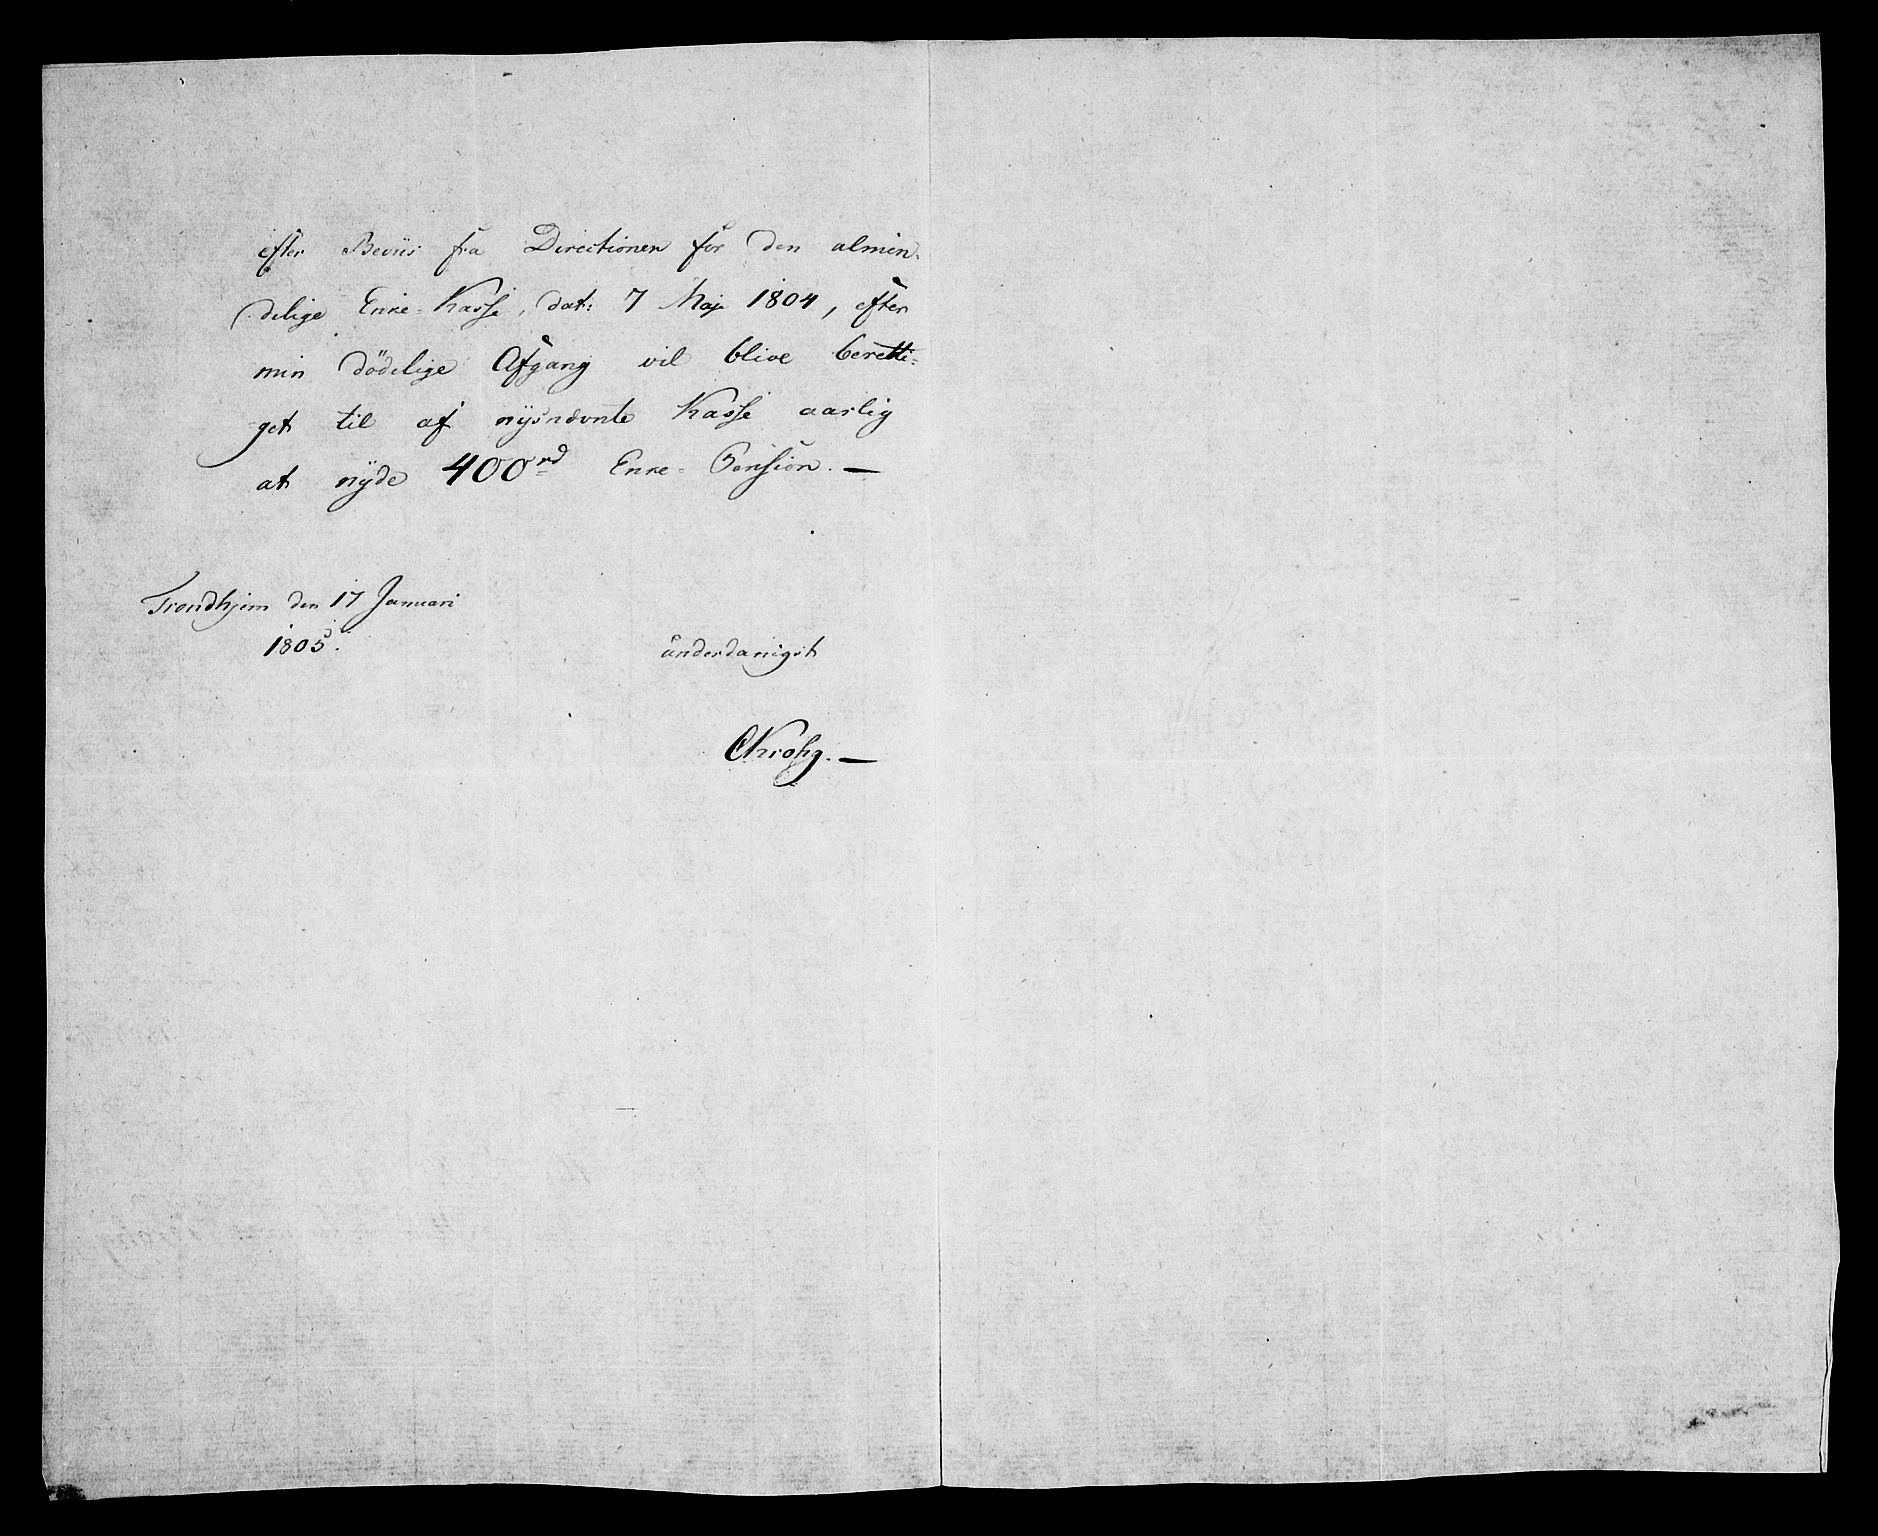 efter Beviis fra Directionen for den almin-
delige Enke-Kasse, dat: 7 Maj 1804, efter
min dödelige Afgang vil blive beretti-
get til af nysnævnte Kasse aarlig
at nyde 400 rd Enke-Pension. —
Trondhjem den 17 Januari
1805.
underdanigst
CKrohg. —